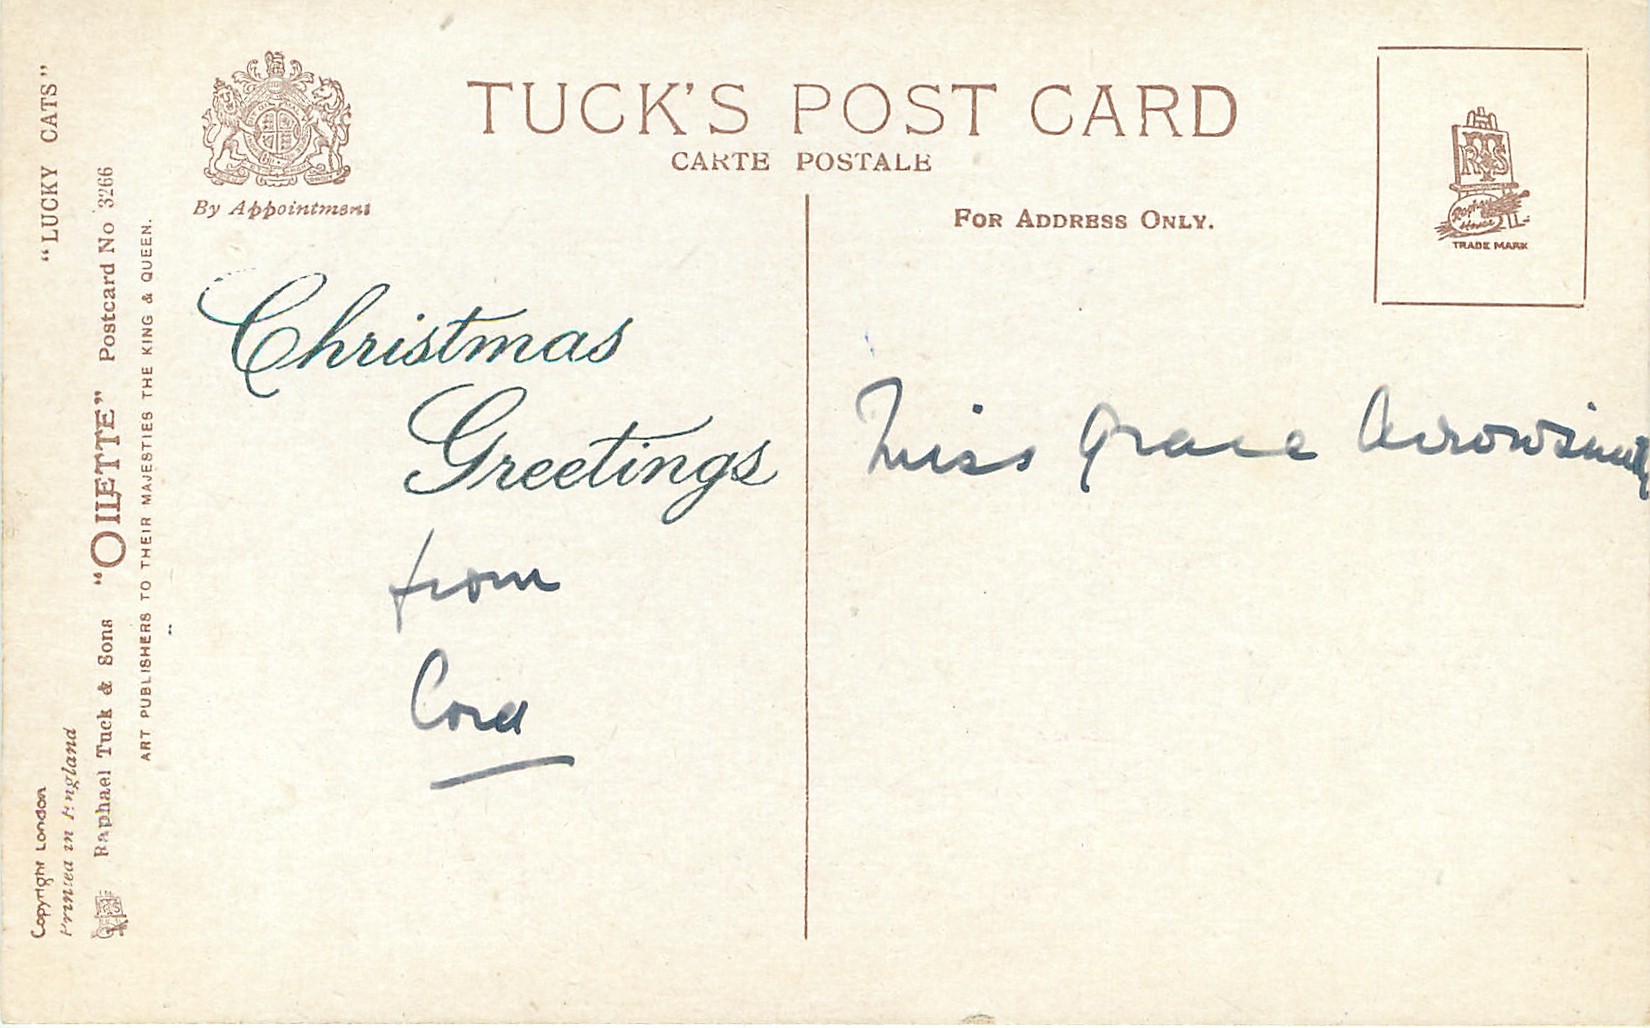 "LUCKY CATS"
Copyright London
Printed in England
Raphael Tuck & Sons "OILETTE" Postcard No 3266
ART PUBLISHERS TO THEIR MAJESTIES THE KING & QUEEN.
By Appointment
TUCK'S POST CARD
CARTE POSTALE
FOR ADDRESS ONLY.
RTS
Raphael
House
TRADE MARK
Christmas
Greetings
from
Cora
Miss Grace Arrowsmith